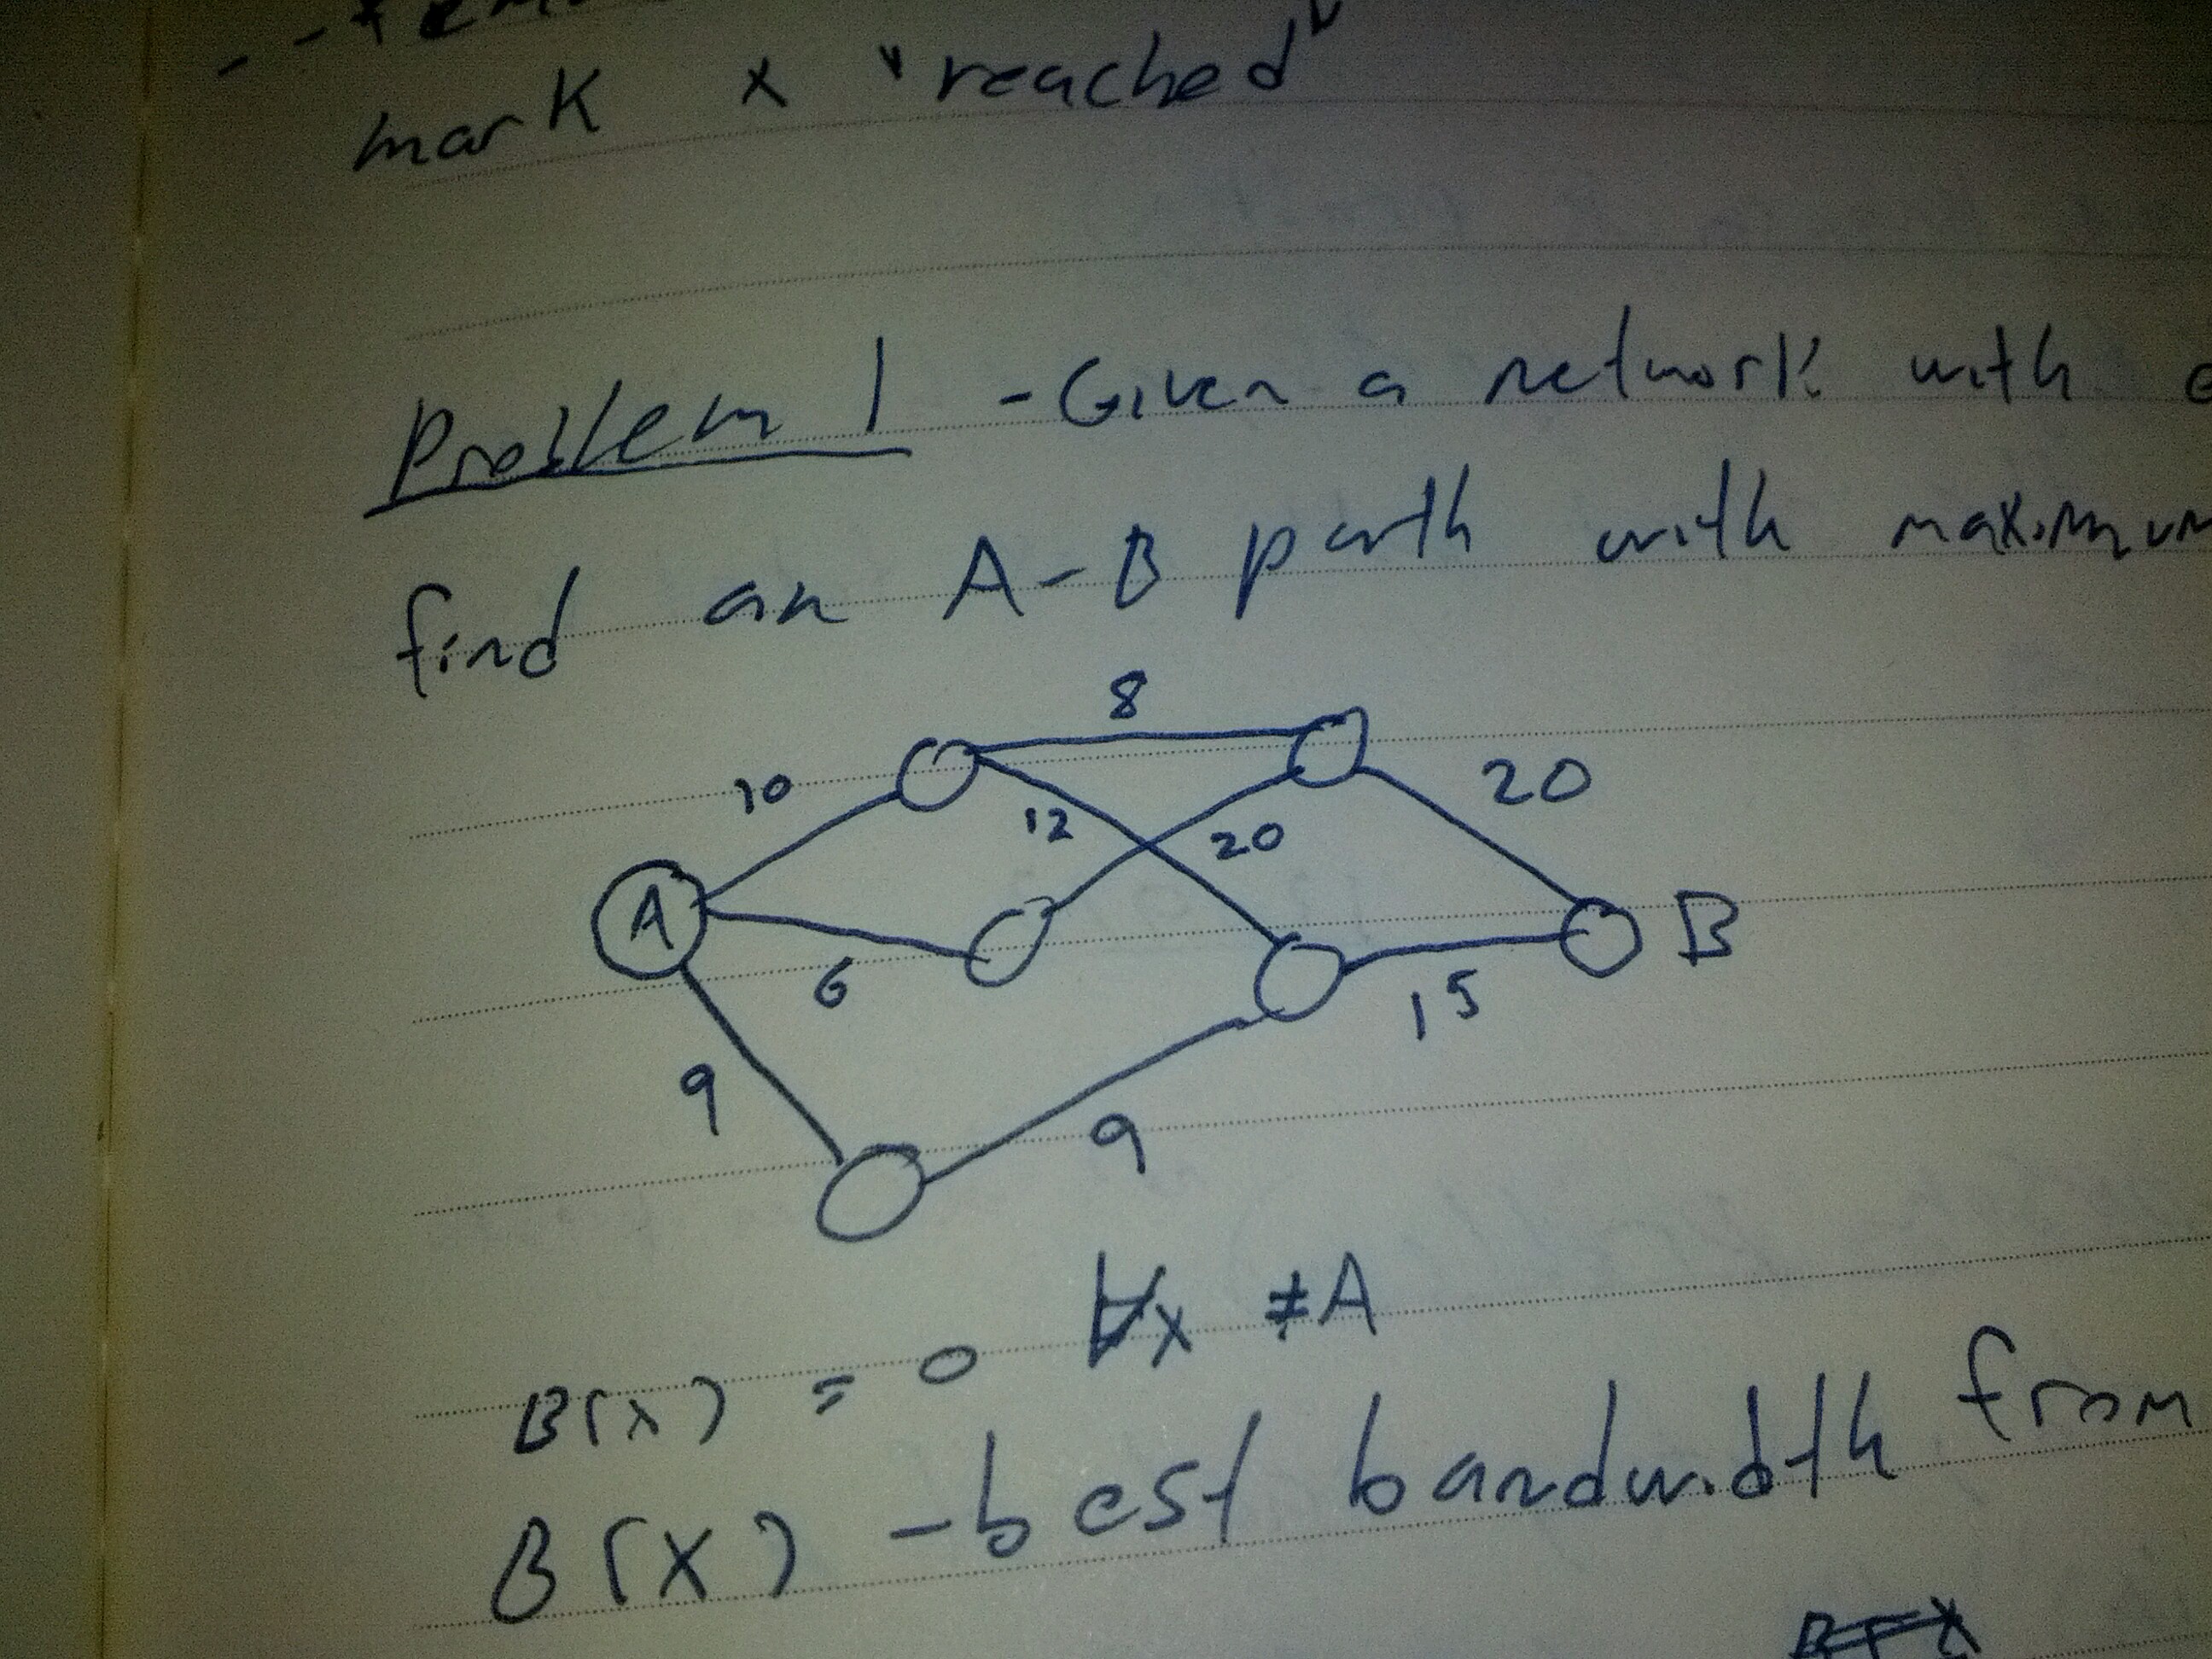 mark x "reached"
Problem 1 - Given a network with
find an A-B path with maximum
8
10
20
12
20
A
B
6
15
9
9
B(x) = 0 ∀x ≠A
B(x) - best bandwidth from